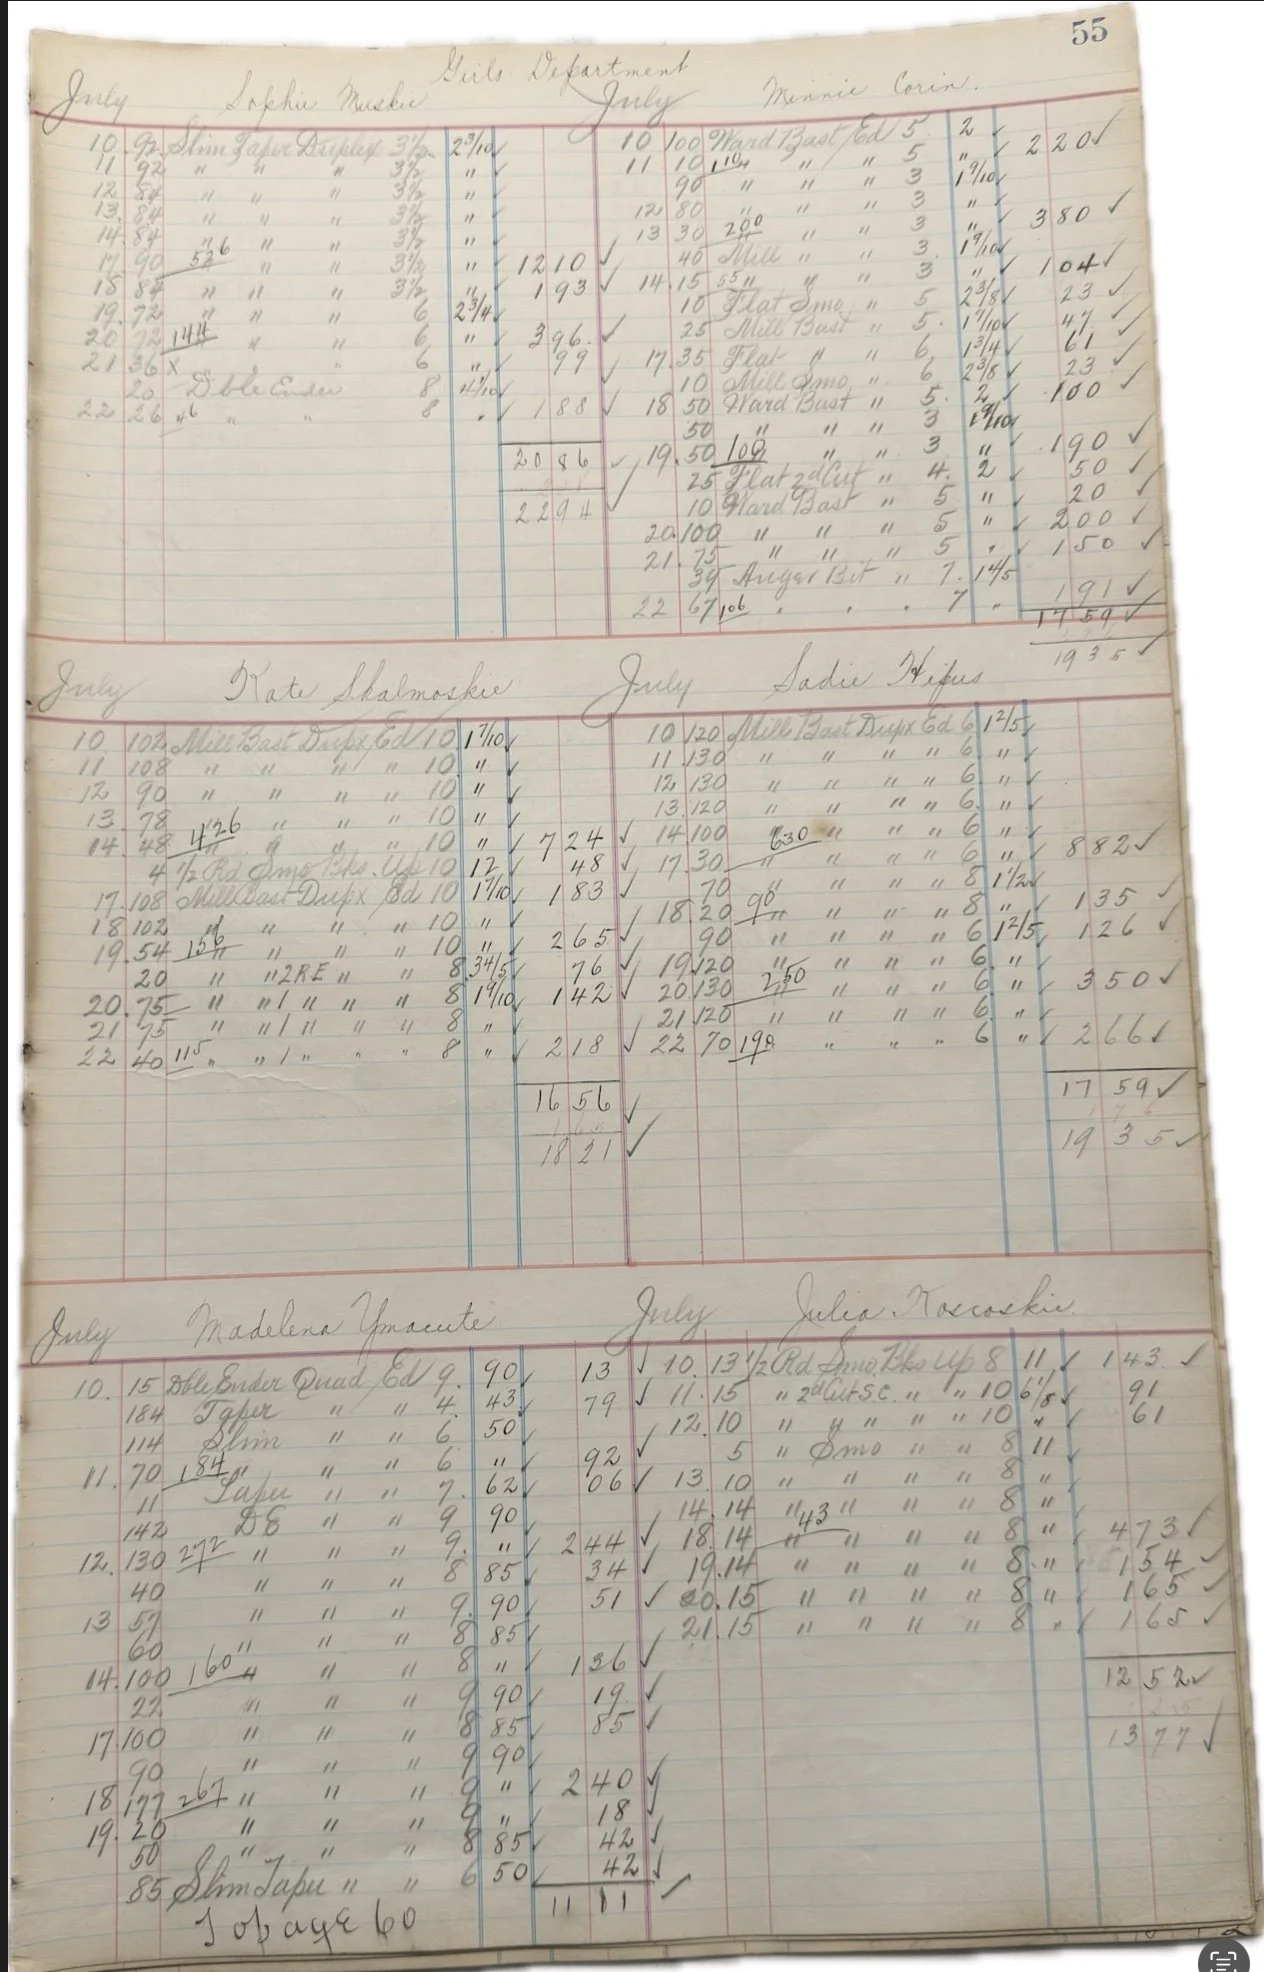 55
Girls Department
July Sophie Muskie
10 92 Slim Taper Druplex 3½ 2 3/10 ✓
11 92 " " " 3½ "
12 84 " " " 3½ " ✓
13. 84 " " " 3½ " ✓
14. 84 " " " 3½ " ✓
17 90 526 " " 3½ " 1210 ✓
18 84 " " " 3½ " 193 ✓
19. 72 " " " 6 2 3/4 ✓
20 72 144 " " 6 " ✓ 396 ✓
21 36 x " " 6 " ✓ 99
20 Dble Ender 8 4 7/10 ✓
22 26 46 " " 8 " ✓ 188 ✓
2086 ✓
2294 ✓
July Minnie Corin.
10 100 Ward Bast Ed 5 2 ✓
11 10 110 " " 5 " ✓ 220 ✓
90 " " " 3 1 9/10 ✓
12 80 " " " 3 " ✓
13 30 200 " " 3 " ✓ 380 ✓
40 Mill " " 3 1 9/10 ✓
14. 15 55 " " " 3 " ✓ 104 ✓
10 Flat Smo " 5 2 3/8 ✓ 23 ✓
25 Mill Bast " 5. 1 9/10 ✓ 47 ✓
17. 35 Flat " " 6 1 3/4 ✓ 61 ✓
10 Mill Smo " 6 2 3/8 ✓ 23 ✓
18 50 Ward Bast " 5. 2 ✓ 100 ✓
50 " " " 3 1 9/10 ✓
19. 50 100 " " 3 " ✓ 190 ✓
25 Flat 2d Cut " 4. 2 ✓ 50 ✓
10 Ward Bast " 5 " ✓ 20 ✓
20. 100 " " " 5 " ✓ 200 ✓
21. 75 " " " 5 " ✓ 150 ✓
39 Auger Bit " 7. 1 4/5
22 67 106 " " " 7 " 191 ✓
1759 ✓
1935 ✓
July Kate Skalmoskie
10 102 Mill Bast Drupx Ed 10 1 7/10 ✓
11 108 " " " " 10 " ✓
12 90 " " " " 10 " ✓
13. 78 " " " 10 " ✓
14. 48 426 " " " 10 " ✓ 724 ✓
4 ½ Rd Smo Bks. Up 10 12 ✓ 48 ✓
17. 108 Mill Bast Drupx Ed 10 1 7/10 ✓ 183 ✓
18 102 " " " " 10 " ✓
19. 54 156 " " " 10 " ✓ 265 ✓
20 " " 2RE " " 8. 3 4/5 ✓ 76 ✓
20. 75 " " 1 " " " 8 1 9/10 ✓ 142 ✓
21 75 " " 1 " " " 8 " ✓
22 40 115 " " 1 " " " 8 " ✓ 218 ✓
1656 ✓
165
1821 ✓
July Sadie Hipus
10 120 Mill Bast Drupx Ed 6 1 2/5 ✓
11 130 " " " " 6 " ✓
12 130 " " " " 6. " ✓
13. 120 " " " " 6. " ✓
14 100 630 " " " 6 " ✓
17. 30 " " " " 6 " ✓ 882 ✓
70 " " " " 8 1 1/2 ✓
18. 20 90 " " " 8 " ✓ 135 ✓
90 " " " " 6 1 2/5 ✓ 126 ✓
19 120 " " " " 6. " ✓
20. 130 250 " " " 6 " ✓ 350 ✓
21 120 " " " " 6. " ✓
22 70 190 " " " 6 " ✓ 266 ✓
1759 ✓
176
1935 ✓
July Madelena Ymacute
10. 15 Dble Ender Quad Ed 9. 90 ✓ 13 ✓
184 Taper " " 4. 43 ✓ 79 ✓
114 Slim " " 6 50
11. 70 184 " " " 6 " ✓ 92 ✓
11 Taper " " 7. 62 ✓ 06 ✓
142 DE " " 9 90
12. 130 272 " " " 9. " ✓ 244 ✓
40 " " " 8 85 ✓ 34 ✓
13 57 " " " 9. 90 ✓ 51 ✓
60 " " " 8 85 ✓
14. 100 160 " " " 8 " ✓ 136 ✓
22 " " " 9 90 ✓ 19. ✓
17. 100 " " " 8 85 ✓ 85 ✓
90 " " " 9 90 ✓
18 177 267 " " " 9 " ✓ 240 ✓
19. 20 " " " 9 " ✓ 18 ✓
50 " " " 8 85 ✓ 42 ✓
85 Slim Taper " " 6 50 ✓ 42 ✓
1111 ✓
To page 60
July Julia Koscoskie.
10. 13 ½ Rd Smo. Bks Up 8 11 ✓ 143 ✓
11. 15 " 2d Cut S.C. " " 10 6 1/8 ✓ 91
12. 10 " " " " " 10 " ✓ 61
5 " Smo " " 8 11
13. 10 " " " " 8 "
14. 14 " " " " 8 "
18. 14 43 " " " " 8 " ✓ 473 ✓
19. 14 " " " " 8. " ✓ 154 ✓
20. 15 " " " " 8 " ✓ 165 ✓
21. 15 " " " " 8 " ✓ 165 ✓
1252 ✓
1377 ✓